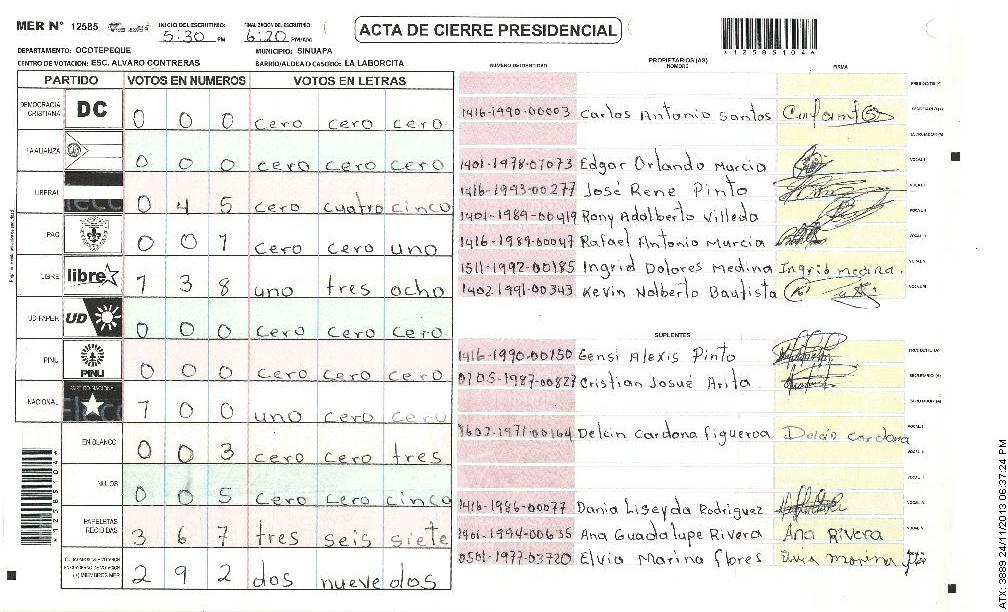 MER N° 12585 INICIO DEL ESCRUTINIO: 5:30 PM FINALIZACION DEL ESCRUTINIO: 6:20 PM/AM
ACTA DE CIERRE PRESIDENCIAL
*A12585104*
DEPARTAMENTO: OCOTEPEQUE MUNICIPIO: SINUAPA
CENTRO DE VOTACION: ESC. ALVARO CONTRERAS BARRIO/ALDEA O CASERIO: LA LABORCITA
PARTIDO VOTOS EN NUMEROS VOTOS EN LETRAS
DEMOCRACIA CRISTIANA DC 0 0 0 cero cero cero
LA ALIANZA 0 0 0 cero cero cero
LIBERAL 0 4 5 cero cuatro cinco
PAC 0 0 1 cero cero uno
LIBRE libre 1 3 8 uno tres ocho
UD-FAPER UD 0 0 0 cero cero cero
PINU PINU 0 0 0 cero cero cero
NACIONAL PARTIDO NACIONAL 1 0 0 uno cero cero
EN BLANCO 0 0 3 cero cero tres
NULOS 0 0 5 cero cero cinco
PAPELETAS RECIBIDAS 3 6 7 tres seis siete
2 9 2 dos nueve dos
NUMERO DE IDENTIDAD PROPIETARIOS (AS) NOMBRE FIRMA
1416-1990-00003 Carlos Antonio Santos
1401-1978-01073 Edgar Orlando Murcia
1416-1993-00277 José Rene Pinto
1401-1989-00419 Rony Adalberto Villeda
1416-1989-00047 Rafael Antonio Murcia
1511-1992-00185 Ingrid Dolores Medina Ingrid medina.
1402-1991-00343 Kevin Nolberto Bautista
SUPLENTES
1416-1990-00150 Gensi Alexis Pinto
0105-1987-00827 Cristian Josué Arita
1607-1971-00164 Delcin Cardona figueroa Delcin cardona
1416-1986-00077 Dania Liseyda Rodriguez
1401-1994-00635 Ana Guadalupe Rivera Ana Rivera
0501-1977-03720 Elvia Marina flores
*A12585104*
ATX: 3889 24/11/2013 06:37:24 PM